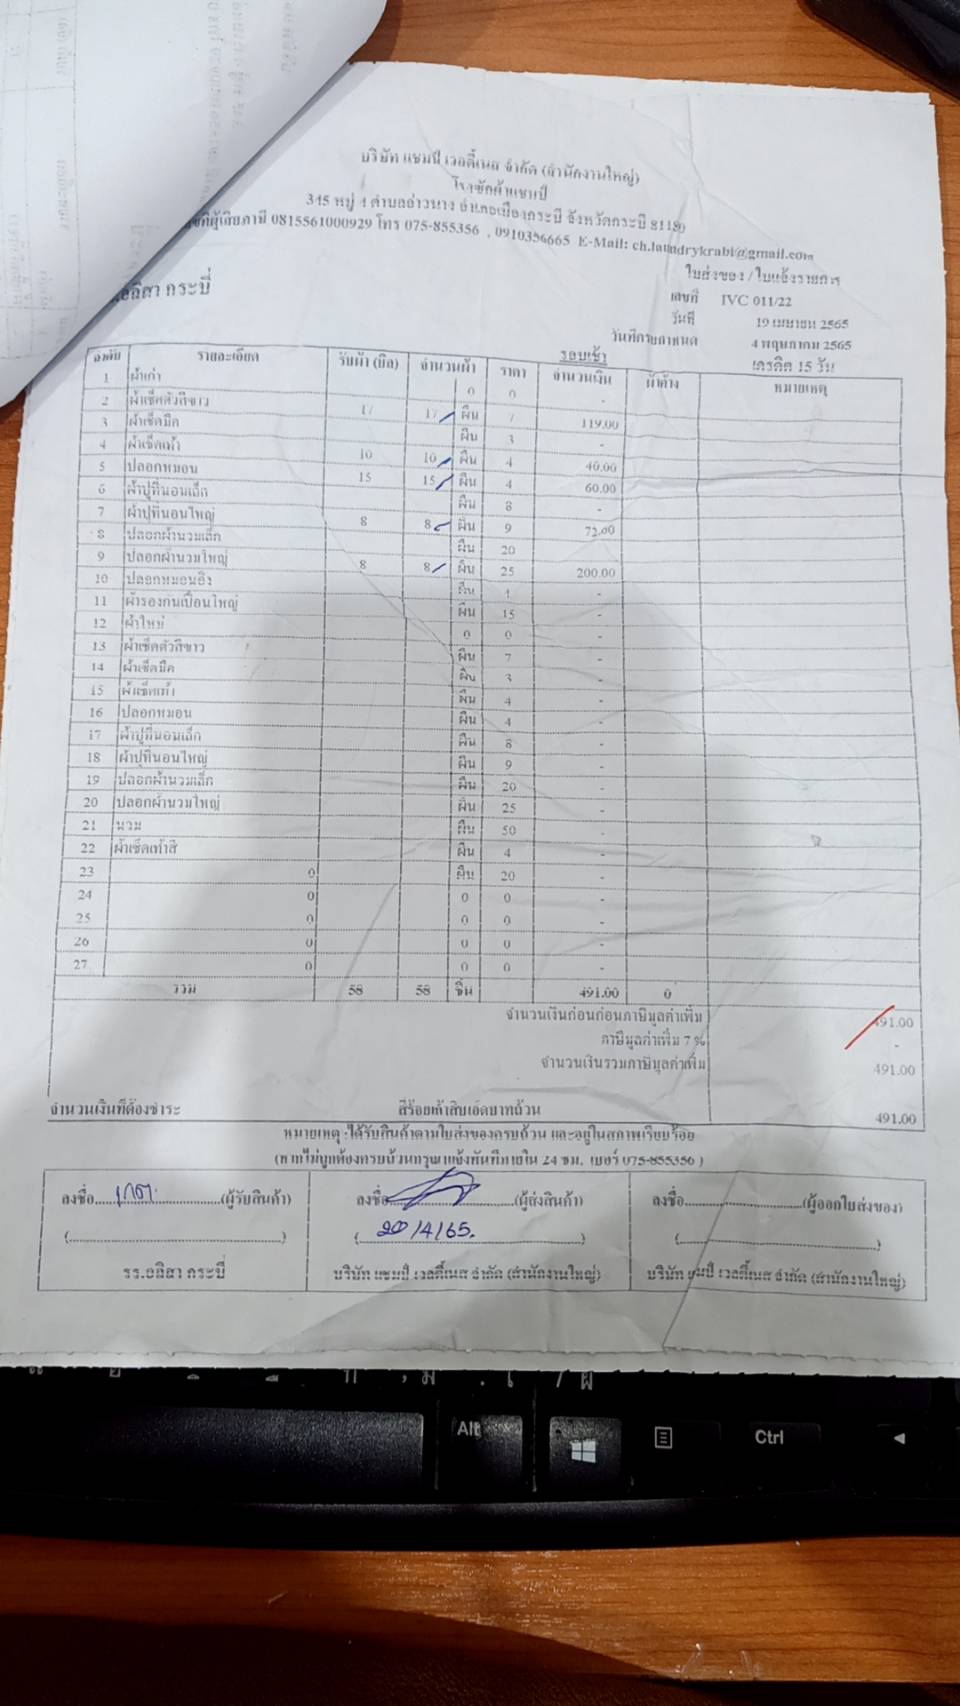 บริษัท แชมป์ เวลตี้เนส จำกัด (สำนักงานใหญ่)
โรงซักผ้าแชมป์
345 หมู่ 4 ตำบลอ่าวนาง อำเภอเมืองกระบี่ จังหวัดกระบี่ 81180
ที่ผู้เสียภาษี 0815561000929 โทร 075-855356 , 0910356665 E-Mail: ch.laundrykrabi@gmail.com
ใบส่งของ / ใบแจ้งรายการ
อลิสา กระบี่
เลขที่ IVC 011/22
วันที่ 19 เมษายน 2565
วันที่ครบกำหนด 4 พฤษภาคม 2565
รอบเช้า เครดิต 15 วัน
ลำดับ รายละเอียด รับผ้า (บิล) จำนวนผ้า ราคา จำนวนเงิน ผ้าค้าง หมายเหตุ
1 ผ้าเก่า 0 0 -
2 ผ้าเช็ดตัวสีขาว 17 17 ผืน 7 119.00
3 ผ้าเช็ดมือ ผืน 3 -
4 ผ้าเช็ดเท้า 10 10 ผืน 4 40.00
5 ปลอกหมอน 15 15 ผืน 4 60.00
6 ผ้าปูที่นอนเล็ก ผืน 8 -
7 ผ้าปูที่นอนใหญ่ 8 8 ผืน 9 72.00
8 ปลอกผ้านวมเล็ก ผืน 20
9 ปลอกผ้านวมใหญ่ 8 8 ผืน 25 200.00
10 ปลอกหมอนอิง ผืน 4 -
11 ผ้ารองกันเปื้อนใหญ่ ผืน 15 -
12 ผ้าใหม่ 0 0 -
13 ผ้าเช็ดตัวสีขาว ผืน 7 -
14 ผ้าเช็ดมือ ผืน 3 -
15 ผ้าเช็ดเท้า ผืน 4 -
16 ปลอกหมอน ผืน 4 -
17 ผ้าปูที่นอนเล็ก ผืน 8 -
18 ผ้าปูที่นอนใหญ่ ผืน 9 -
19 ปลอกผ้านวมเล็ก ผืน 20 -
20 ปลอกผ้านวมใหญ่ ผืน 25 -
21 นวม ผืน 50 -
22 ผ้าเช็ดเท้าสี ผืน 4 -
23 0 ผืน 20 -
24 0 0 0 -
25 0 0 0 -
26 0 0 0 -
27 0 0 0 -
รวม 58 58 ชิ้น 491.00 0
จำนวนเงินก่อนก่อนภาษีมูลค่าเพิ่ม 491.00
ภาษีมูลค่าเพิ่ม 7 % -
จำนวนเงินรวมภาษีมูลค่าเพิ่ม 491.00
จำนวนเงินที่ต้องชำระ สี่ร้อยเก้าสิบเอ็ดบาทถ้วน 491.00
หมายเหตุ :ได้รับสินค้าตามใบส่งของครบถ้วน และอยู่ในสภาพเรียบร้อย
(หากไม่ถูกต้องครบถ้วนกรุณาแจ้งทันทีภายใน 24 ชม. เบอร์ 075-855356 )
ลงชื่อ..........(ผู้รับสินค้า) ลงชื่อ..........(ผู้ส่งสินค้า) ลงชื่อ..........(ผู้ออกใบส่งของ)
(..........) (20/4/65.) (..........)
รร.อลิสา กระบี่ บริษัท แชมป์ เวลตี้เนส จำกัด (สำนักงานใหญ่) บริษัท แชมป์ เวลตี้เนส จำกัด (สำนักงานใหญ่)
Alt Ctrl